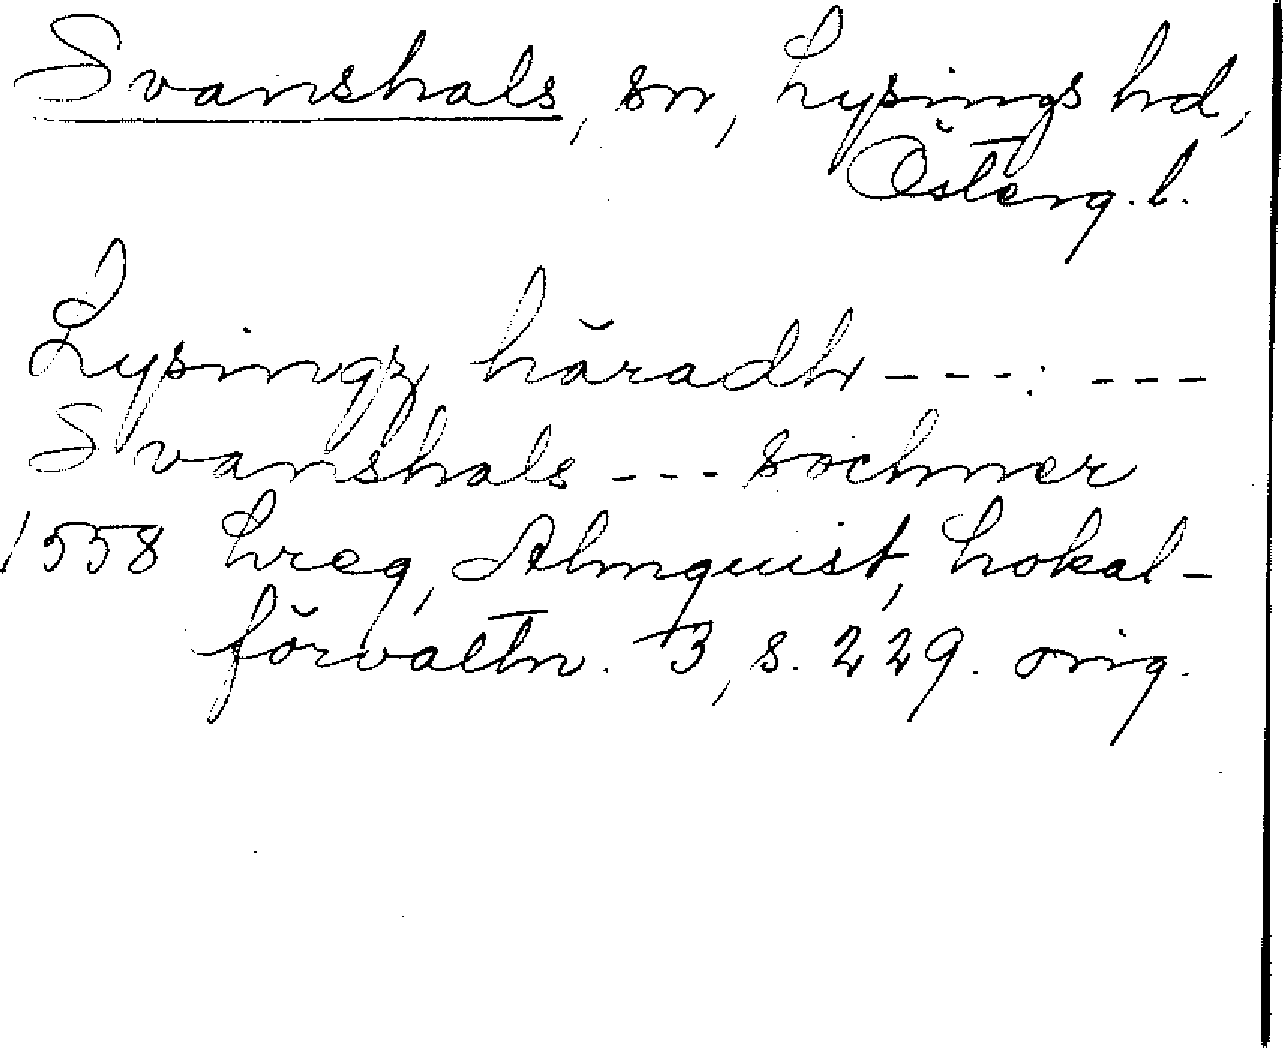 Svanshals, sn, Lysings hd,
Österg. l.
Lysingz häradh ---: ---
Svanshals --- sochner
1558 Lreg, Almquist, Lokal-
förvaltn. 3, s. 229. orig.